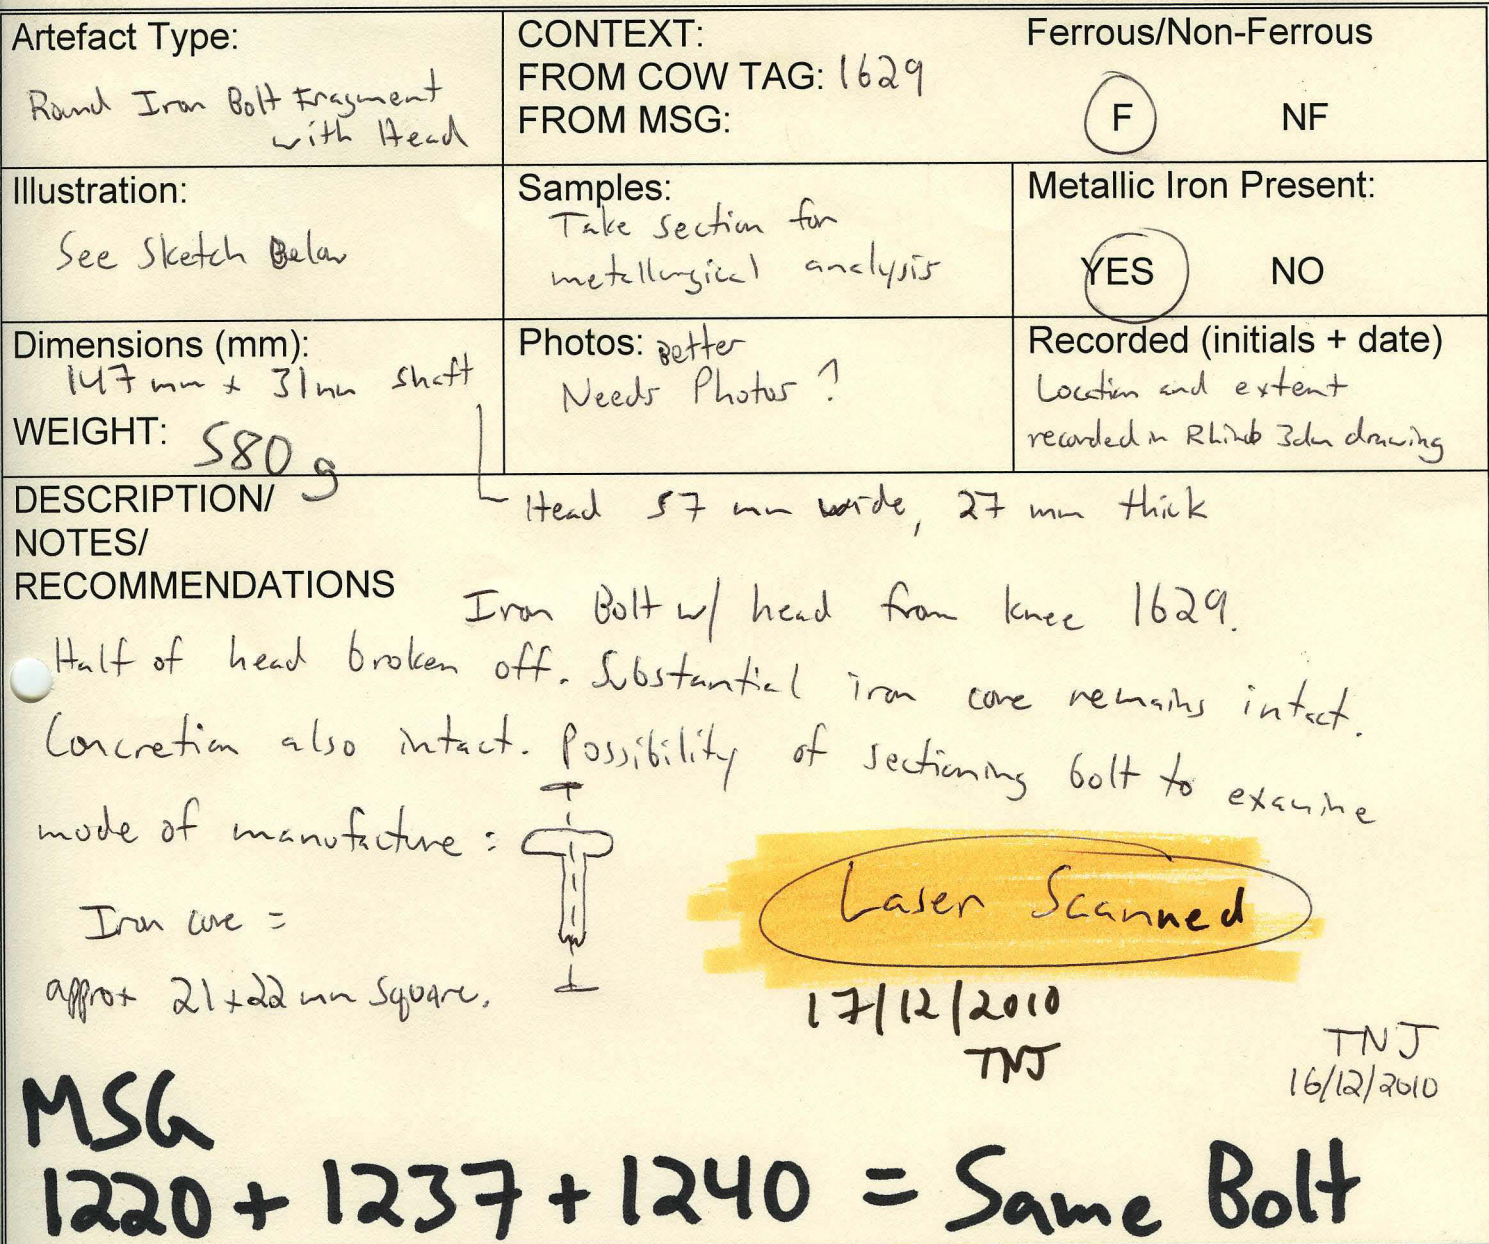 Artefact Type:
Round Iron Bolt Fragment
with Head
CONTEXT:
FROM COW TAG: 1629
FROM MSG:
Ferrous/Non-Ferrous
F NF
Illustration:
See Sketch Below
Samples:
Take section for
metallurgical analysis
Metallic Iron Present:
YES NO
Dimensions (mm):
147 mm x 31 mm shaft
WEIGHT: 580 g
Photos: Better
Needs Photos ?
Recorded (initials + date)
Location and extent
recorded in Rhino 3dm drawing
DESCRIPTION/
NOTES/
RECOMMENDATIONS
Head 57 mm wide, 27 mm thick
Iron Bolt w/ head from knee 1629.
Half of head broken off. Substantial iron core remains intact.
Concretion also intact. Possibility of sectioning bolt to examine
mode of manufacture :
Iron core =
approx 21x22 mm square.
Laser Scanned
17/12/2010
TNJ
TNJ
16/12/2010
MSG
1220 + 1237 + 1240 = Same Bolt